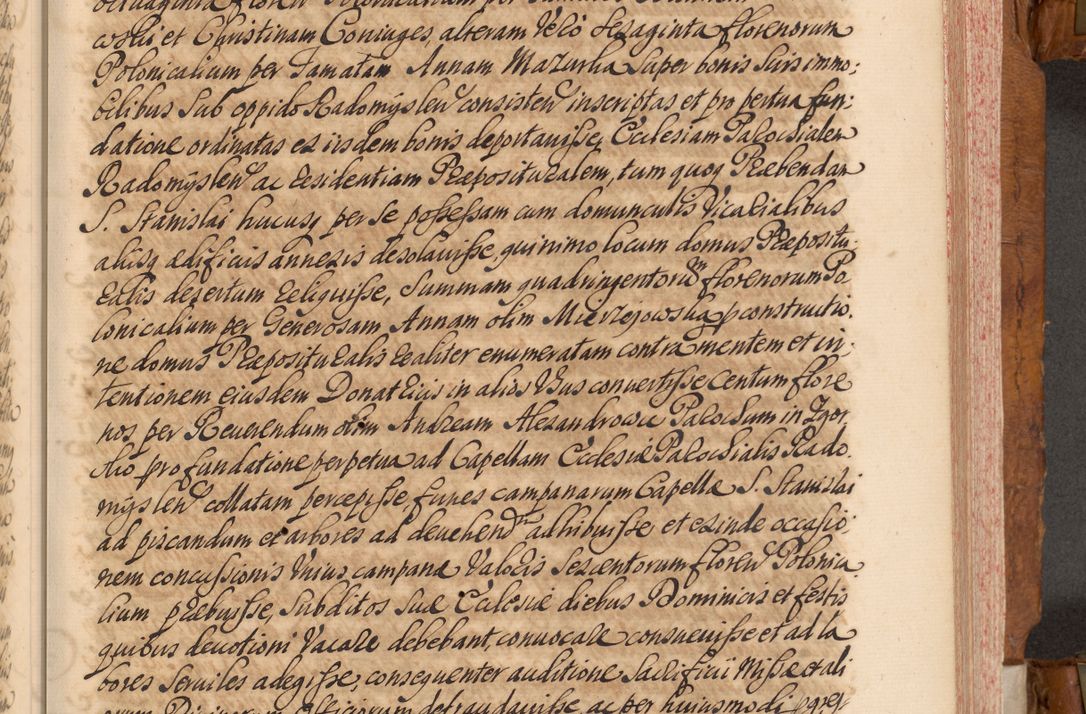 coscki et Christinam Coniuges, alteram Vero Sexaginta florenorum
Polonicalium per Famatam Annam Mazurka Super bonis Suis immo:
bilibus Sub oppido Radomyslen consisten inscriptas et pro pertua fun:
datione ordinatas ex iisdem bonis deportavisse, Ecclesiam Parochialen
Radomyslen ac Residentiam Præpositu­ralem, tum quoq Præbendam
S. Stanislai hucusq per se possessam cum domunculis Vicarialibus
aliisq ædificiis annexis desolavisse, quinimo locum domus Præpositu
ralis desertum reliquisse, Summam quadringentorum florenorum Po
lonicalium per Generosam Annam olim Mierzejowska p constructio
ne domus Præpositu­ralis realiter enumeratam contra mentem et in:
tentionem eiusdem Donatricis in alios Usus convertisse Centum flore
nos per Reverendum olim Andream Alexandrowic Parochum in
pro fundatione perpetua ad Capellam Ecclesiæ Parochialis Rado
myslen collatam percepisse funes campanarum Capellæ S. Stanislai
ad piscandum et arbores ad devehend adhibuisse et exinde occasio
nem concussionis Unius campanæ Valoris Sexcentorum floren Polonica
lium præbuisse, Subditos Suæ Ecclesiæ diebus Dominicis et festis
quibus devotioni Vacare debebant, convocare consuevisse et ad la
bores Serviles adegisse, consequenter auditione Sacrificii Missæ et ali
orum Divinorum Officiorum defraudavisse, ac per huiusmodi